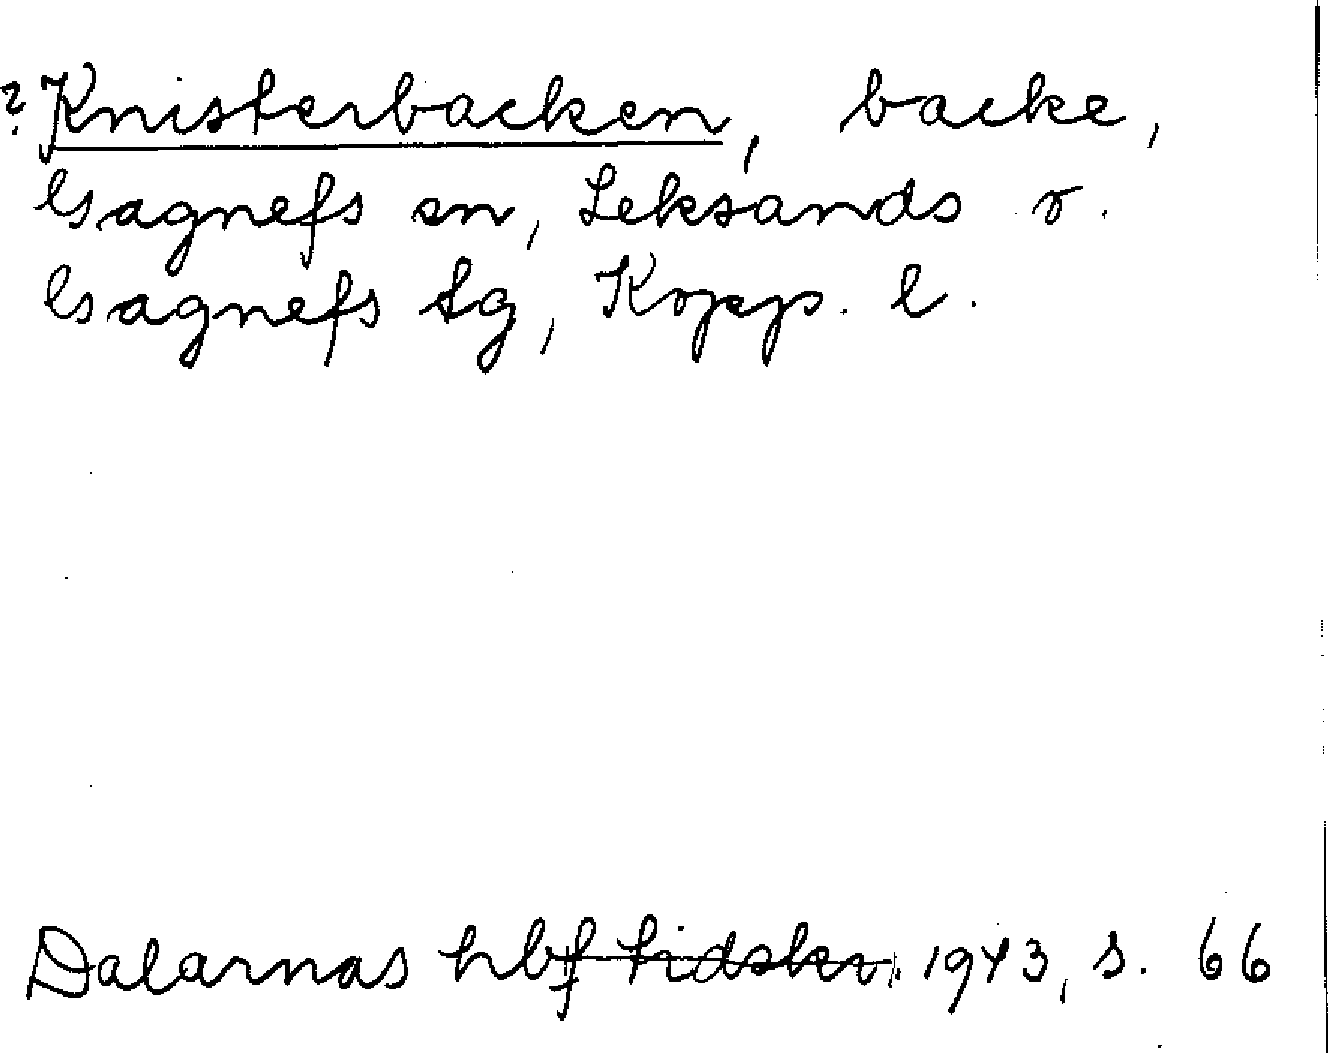 ? Knisterbacken, backe,
Gagnefs sn, Leksands o.
Gagnefs tg, Kopp. l.
Dalarnas hbf tidskr. 1943, s. 66